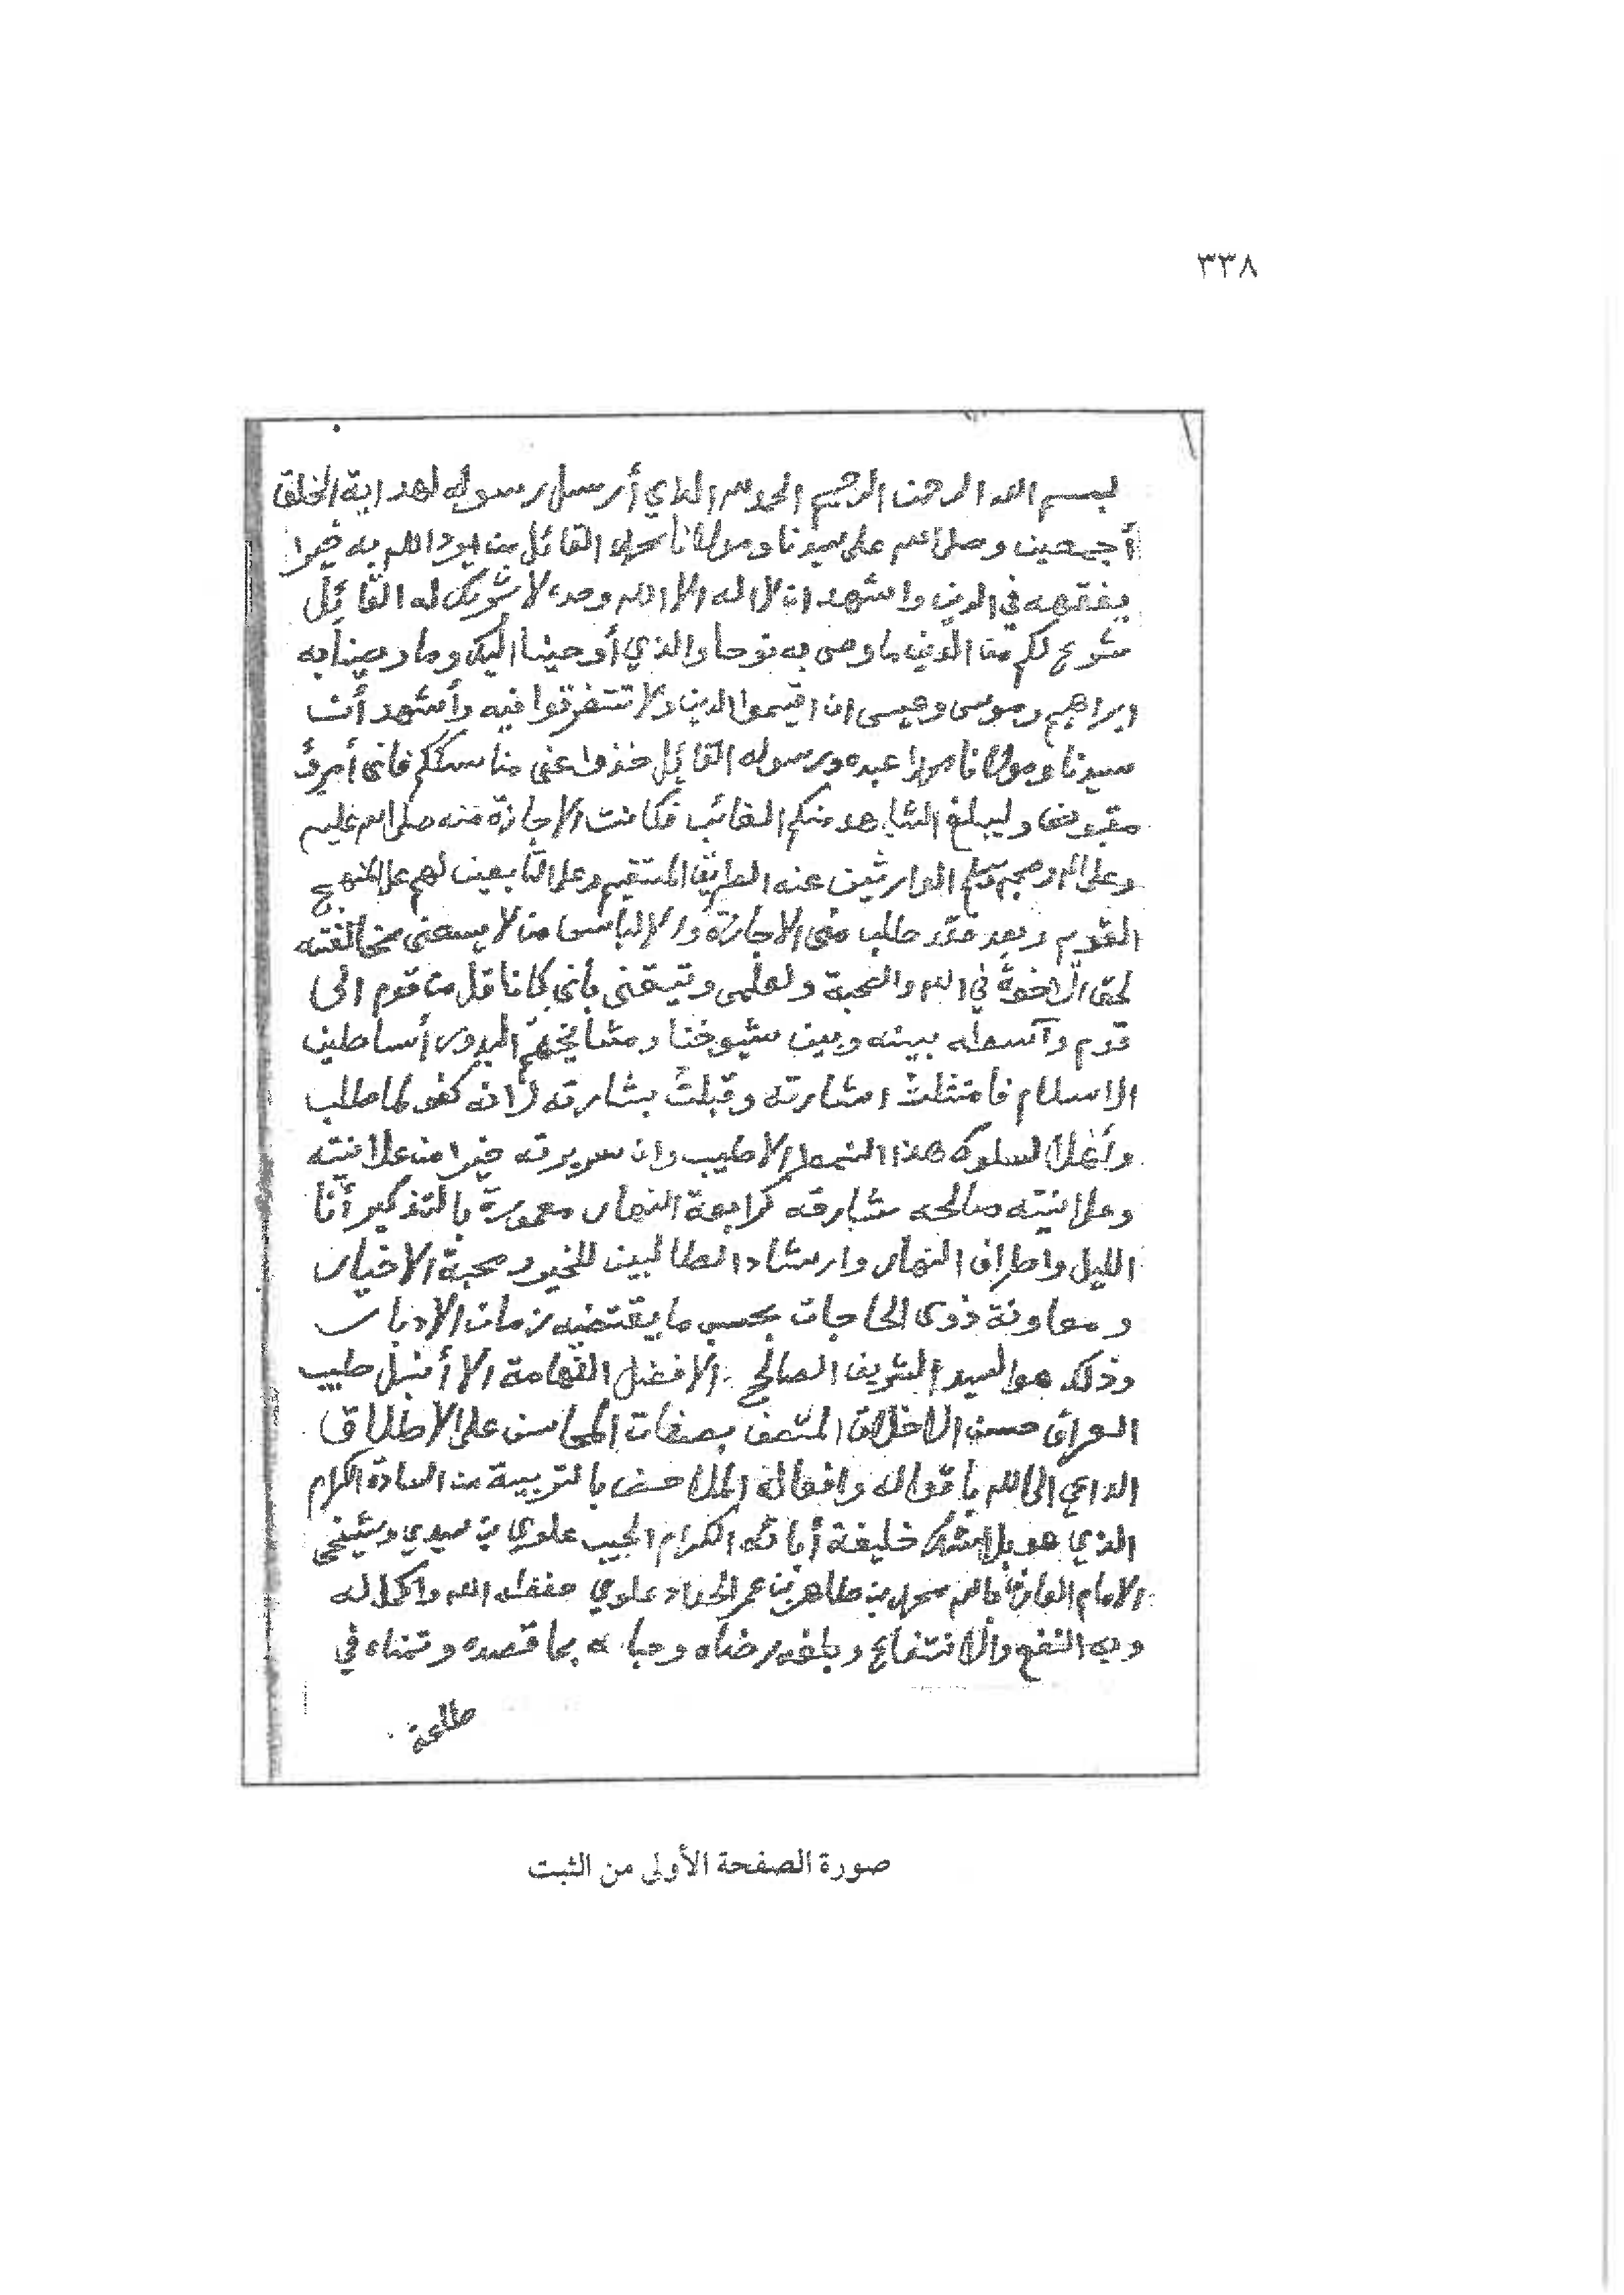 ٣٣٨
بسم الله الرحمن الرحيم الحمد لله الذي أرسل رسوله لهداية الخلق
أجمعين وصلى الله على سيدنا ومولانا محمد القائل من يرد الله به خيرا
يفقهه في الدين واشهد ان لا اله الا الله وحده لا شريك له القائل
شرع لكم من الدين ما وصى به نوحا والذي أوحينا اليك وما وصينا به
ابراهيم وموسى وعيسى ان اقيموا الدين ولا تتفرقوا فيه وأشهد أن
سيدنا ومولانا محمدا عبده ورسوله القائل خذوا عني مناسككم فانى أمرؤ
مقبوض وليبلغ الشاهد منكم الغائب فكانت الاجازة منه صلى الله عليه
وعلى اله وصحبه وسلم الوارثين عنه الطريق المستقيم وعلى التابعين لهم على المنهج
القويم وبعد فقد طلب منى الاجازة والالباس من لا يسعنى مخالفته
لحق الاخوة في الله والصحبة ولعلمى وتيقنى بأنى كناقل من قوم الى
قوم وآسطه بينه وبين شيوخنا ومشايخهم أساطين
الاسلام فامتثلت اشارته وقبلت بشارته لانه كفو لما طلب
وأهلا لسلوك هذا الاطيب وان سريرته خيرا من علانيته
وعلانيته صالحه شارقه كرابعة النهار معمورة بالتذكير أنا
الليل واطراف النهار وارشاد الطالبين للخير ومحبة الاخيار
ومعاونة ذوى الحاجات بحسب ما يقتضيه زمان الادبار
وذلك هو السيد الشريف الصالح الافضل الفهامة الا أنبل طيب
حسن الاخلاق المتصف بصفات المحاسن على الاطلاق
الداعي الى الله باقواله وافعاله الملاحض بالتربية من السادة الكرام
الذي هو بلا شك خليفة أبائه الكرام الحبيب علوي بن سيدي وشيخى
الامام العارف بالله محمد بن طاهر بن عمر الحداد علوي حفظه الله واكمل له
وبه النفع والانتفاع وبلغه رضاه وحباه بما قصده وتمناه في
صورة الصفحة الأولى من الثبت